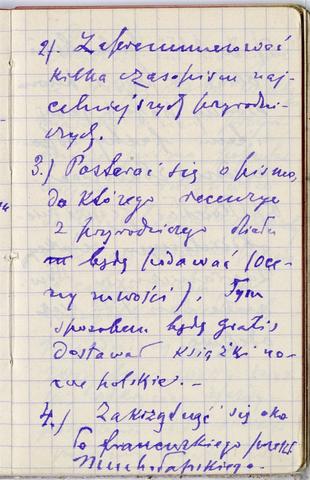 2). Zaprenumerować
kilka czasopism naj-
celniejszych przyrodni-
czych.
3.) Postarać się o pismo,
do którego recenzye
z przyrodniczego działu
będę podawać (oce-
ny nowości). Tym
sposobem będę gratis
dostawał książki no-
we polskie. —
4.) się oko-
ło francuskiego przekł.